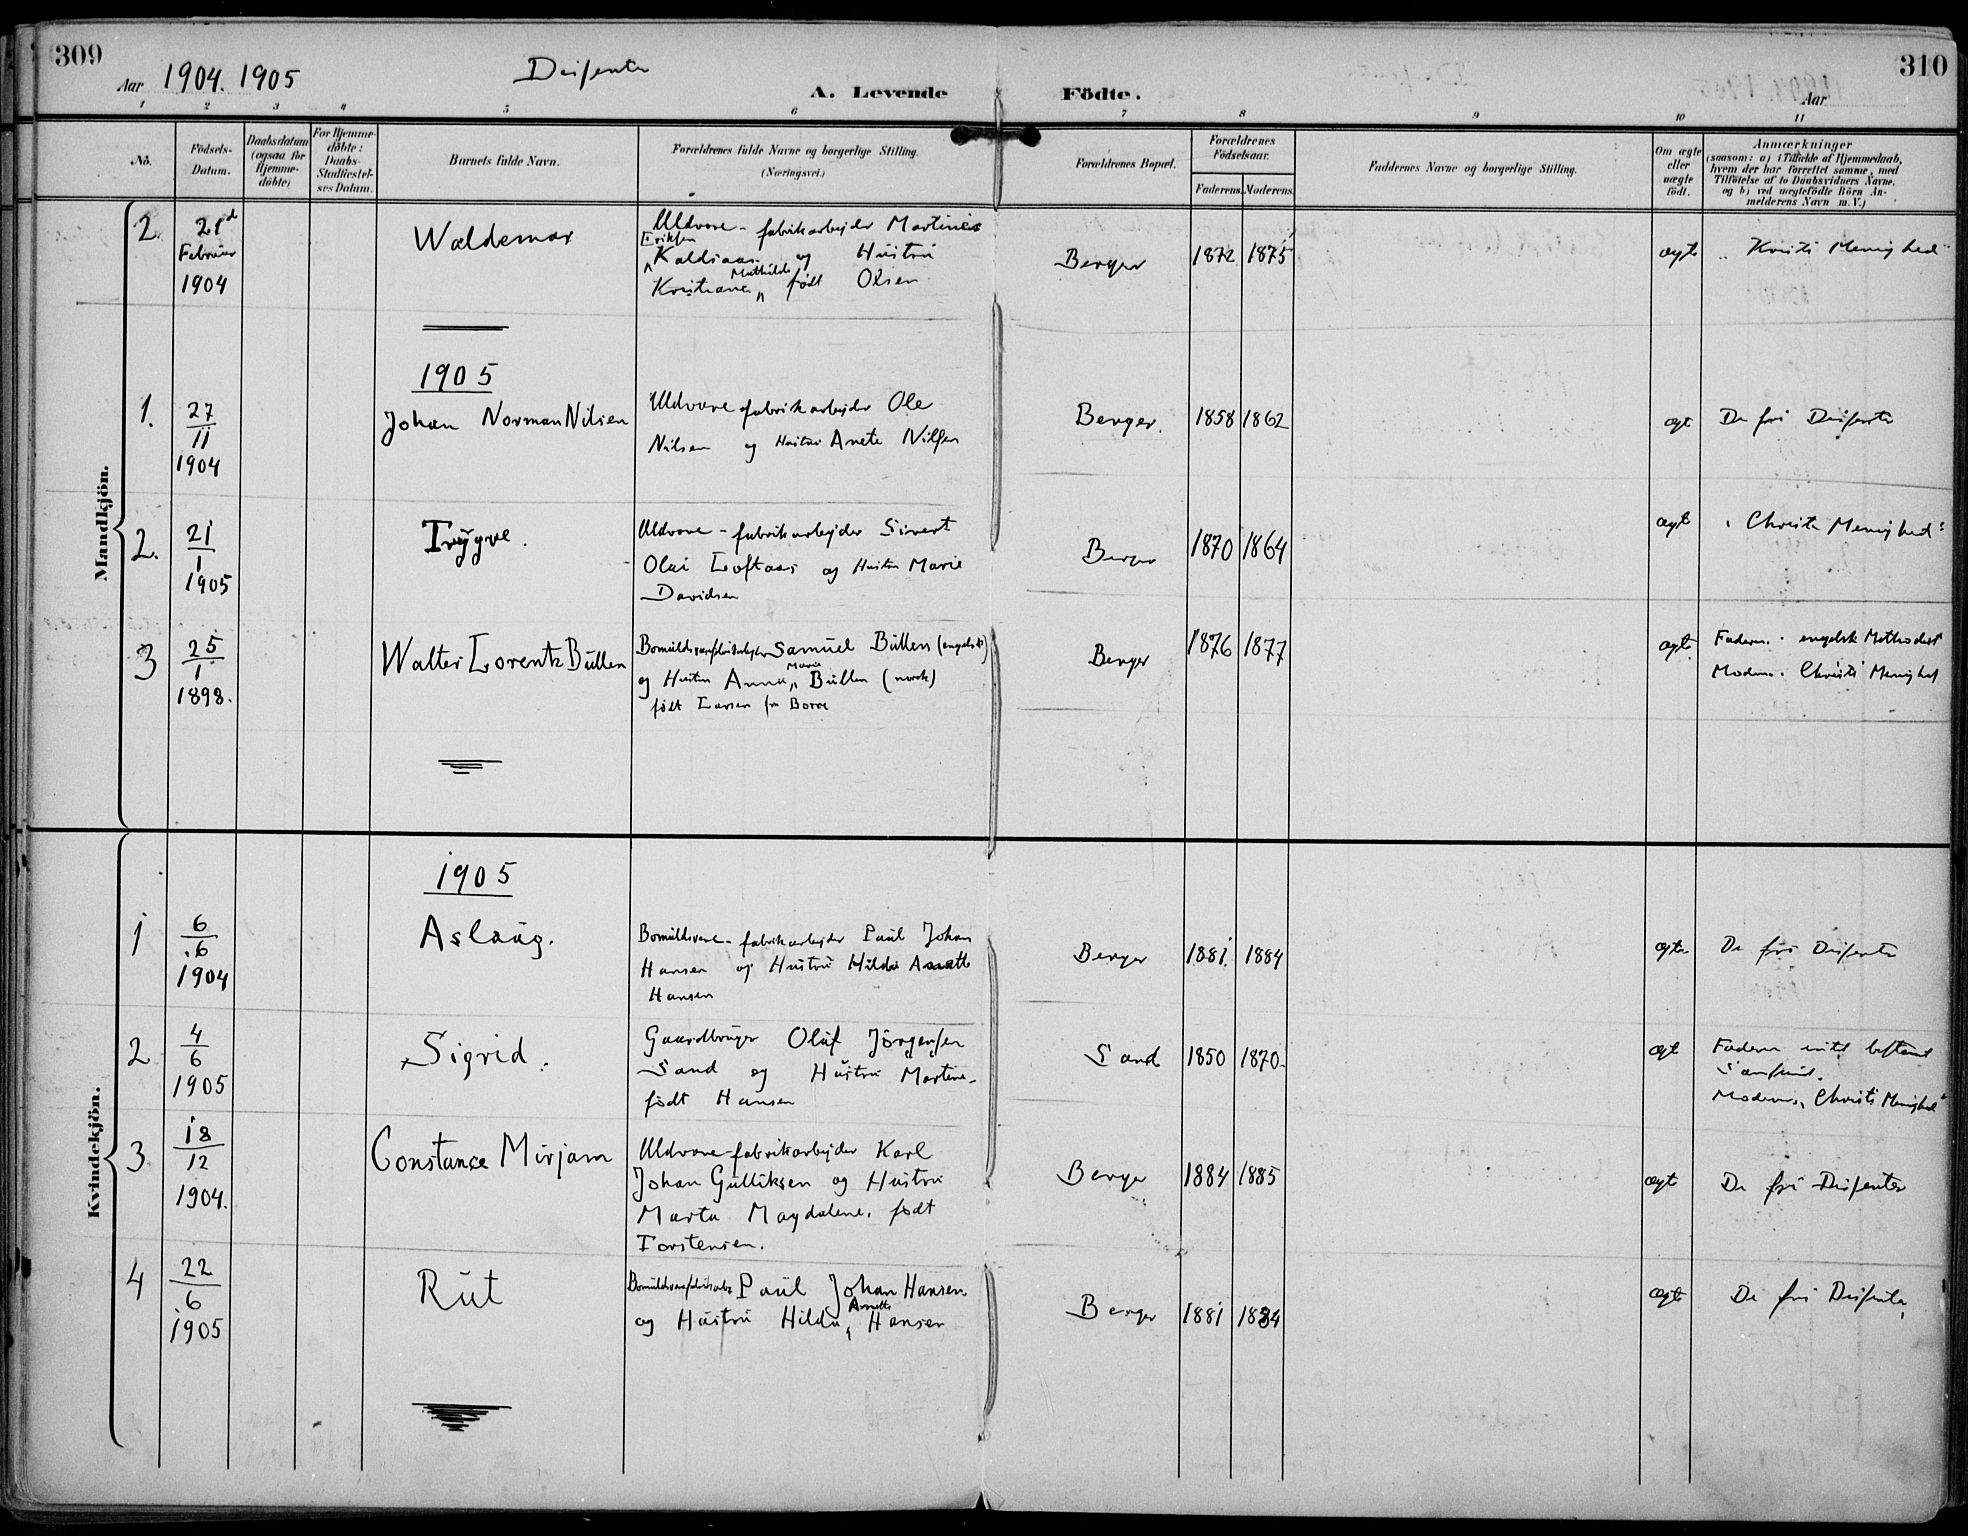 309
310
Aar 1904. 1905
Disenter
A. Levende Födte.
Aar
1 2 3 4 5 6 7 8 9 10 11
No.
Födsels-Datum.
Daabsdatum (ogsaa for Hjemme-döbte)
For Hjemme-döbte: Daabs-Stadfæstel-ses Datum.
Barnets fulde Navn.
Forældrenes fulde Navne og borgerlige Stilling. (Næringsvei.)
Forældrenes Bopæl.
Forældrenes Födselsaar.
Faderens. Moderens.
Faddernes Navne og borgerlige Stilling.
Om ægte eller uægte födt.
Anmærkninger
(saasom: a) i Tilfælde af Hjemmedaab,
hvem der har forrettet samme, med
Tilföielse af to Daabsvidners Navne,
og b) ved uægtefödte Börn An-
melderens Navn m. V.)
Mandkjön.
2 21d Februar 1904
Waldemar
Uldvare-fabrikarbejder Martinius
Eriksen
Kaldsaas og Hustru
Mathilde
Kristiane født Olsen
Berger 1872 1875 ægte „Kristi Menighed"
1905
1. 27/11 1904
Johan Norman Nilsen
Uldvarefabrikarbejder Ole
Nilsen og Hustru Anete Nilsen
Berger. 1858 1862 ægt De fri Disenter
2. 21/1 1905
Trygve.
Uldvare-fabrikarbejder Sivert
Olai Loftaas og Hustru Marie
Davidsen
Berger 1870 1864 ægte „Christi Menighed"
3 25/1 1898.
Walter Lorentz Bullen
Bomuldsvarefabrikarbejder Samuel Bullen (engelsk)
Marie
og Hustru Anna Bullen (norsk)
født Larsen fra Borre
Berger 1876 1877 ægte. Faderen: engelsk Methodist
Moderen: Christi Menighed
Kvindekjön.
1905
1 6/6 1904
Aslaug.
Bomuldsvare-fabrikarbejder Paul Johan
Hansen og Hustru Hilda Anette
Hansen
Berger 1881. 1884 ægte De fri Disenter
2 4/6 1905
Sigrid.
Gaardbruger Oluf Jørgensen
Sand og Hustru Martine
født Hansen
Sand 1850 1870. ægt Faderen intet bestemt
Samfund.
Moderen, Christi Menighed"
3 18/12 1904.
Constance Mirjam
Uldvare-fabrikarbejder Karl
Johan Gulliksen og Hustru
Marta Magdalene. født
Torstensen.
Berger 1884 1885 ægte De fri Disenter
4 22/6 1905
Rut
Bomuldsvarefabrikarb. Paul Johan Hansen
Anette
og Hustru Hilda Hansen
Berger 1881 1884 ægte De fri Disenter